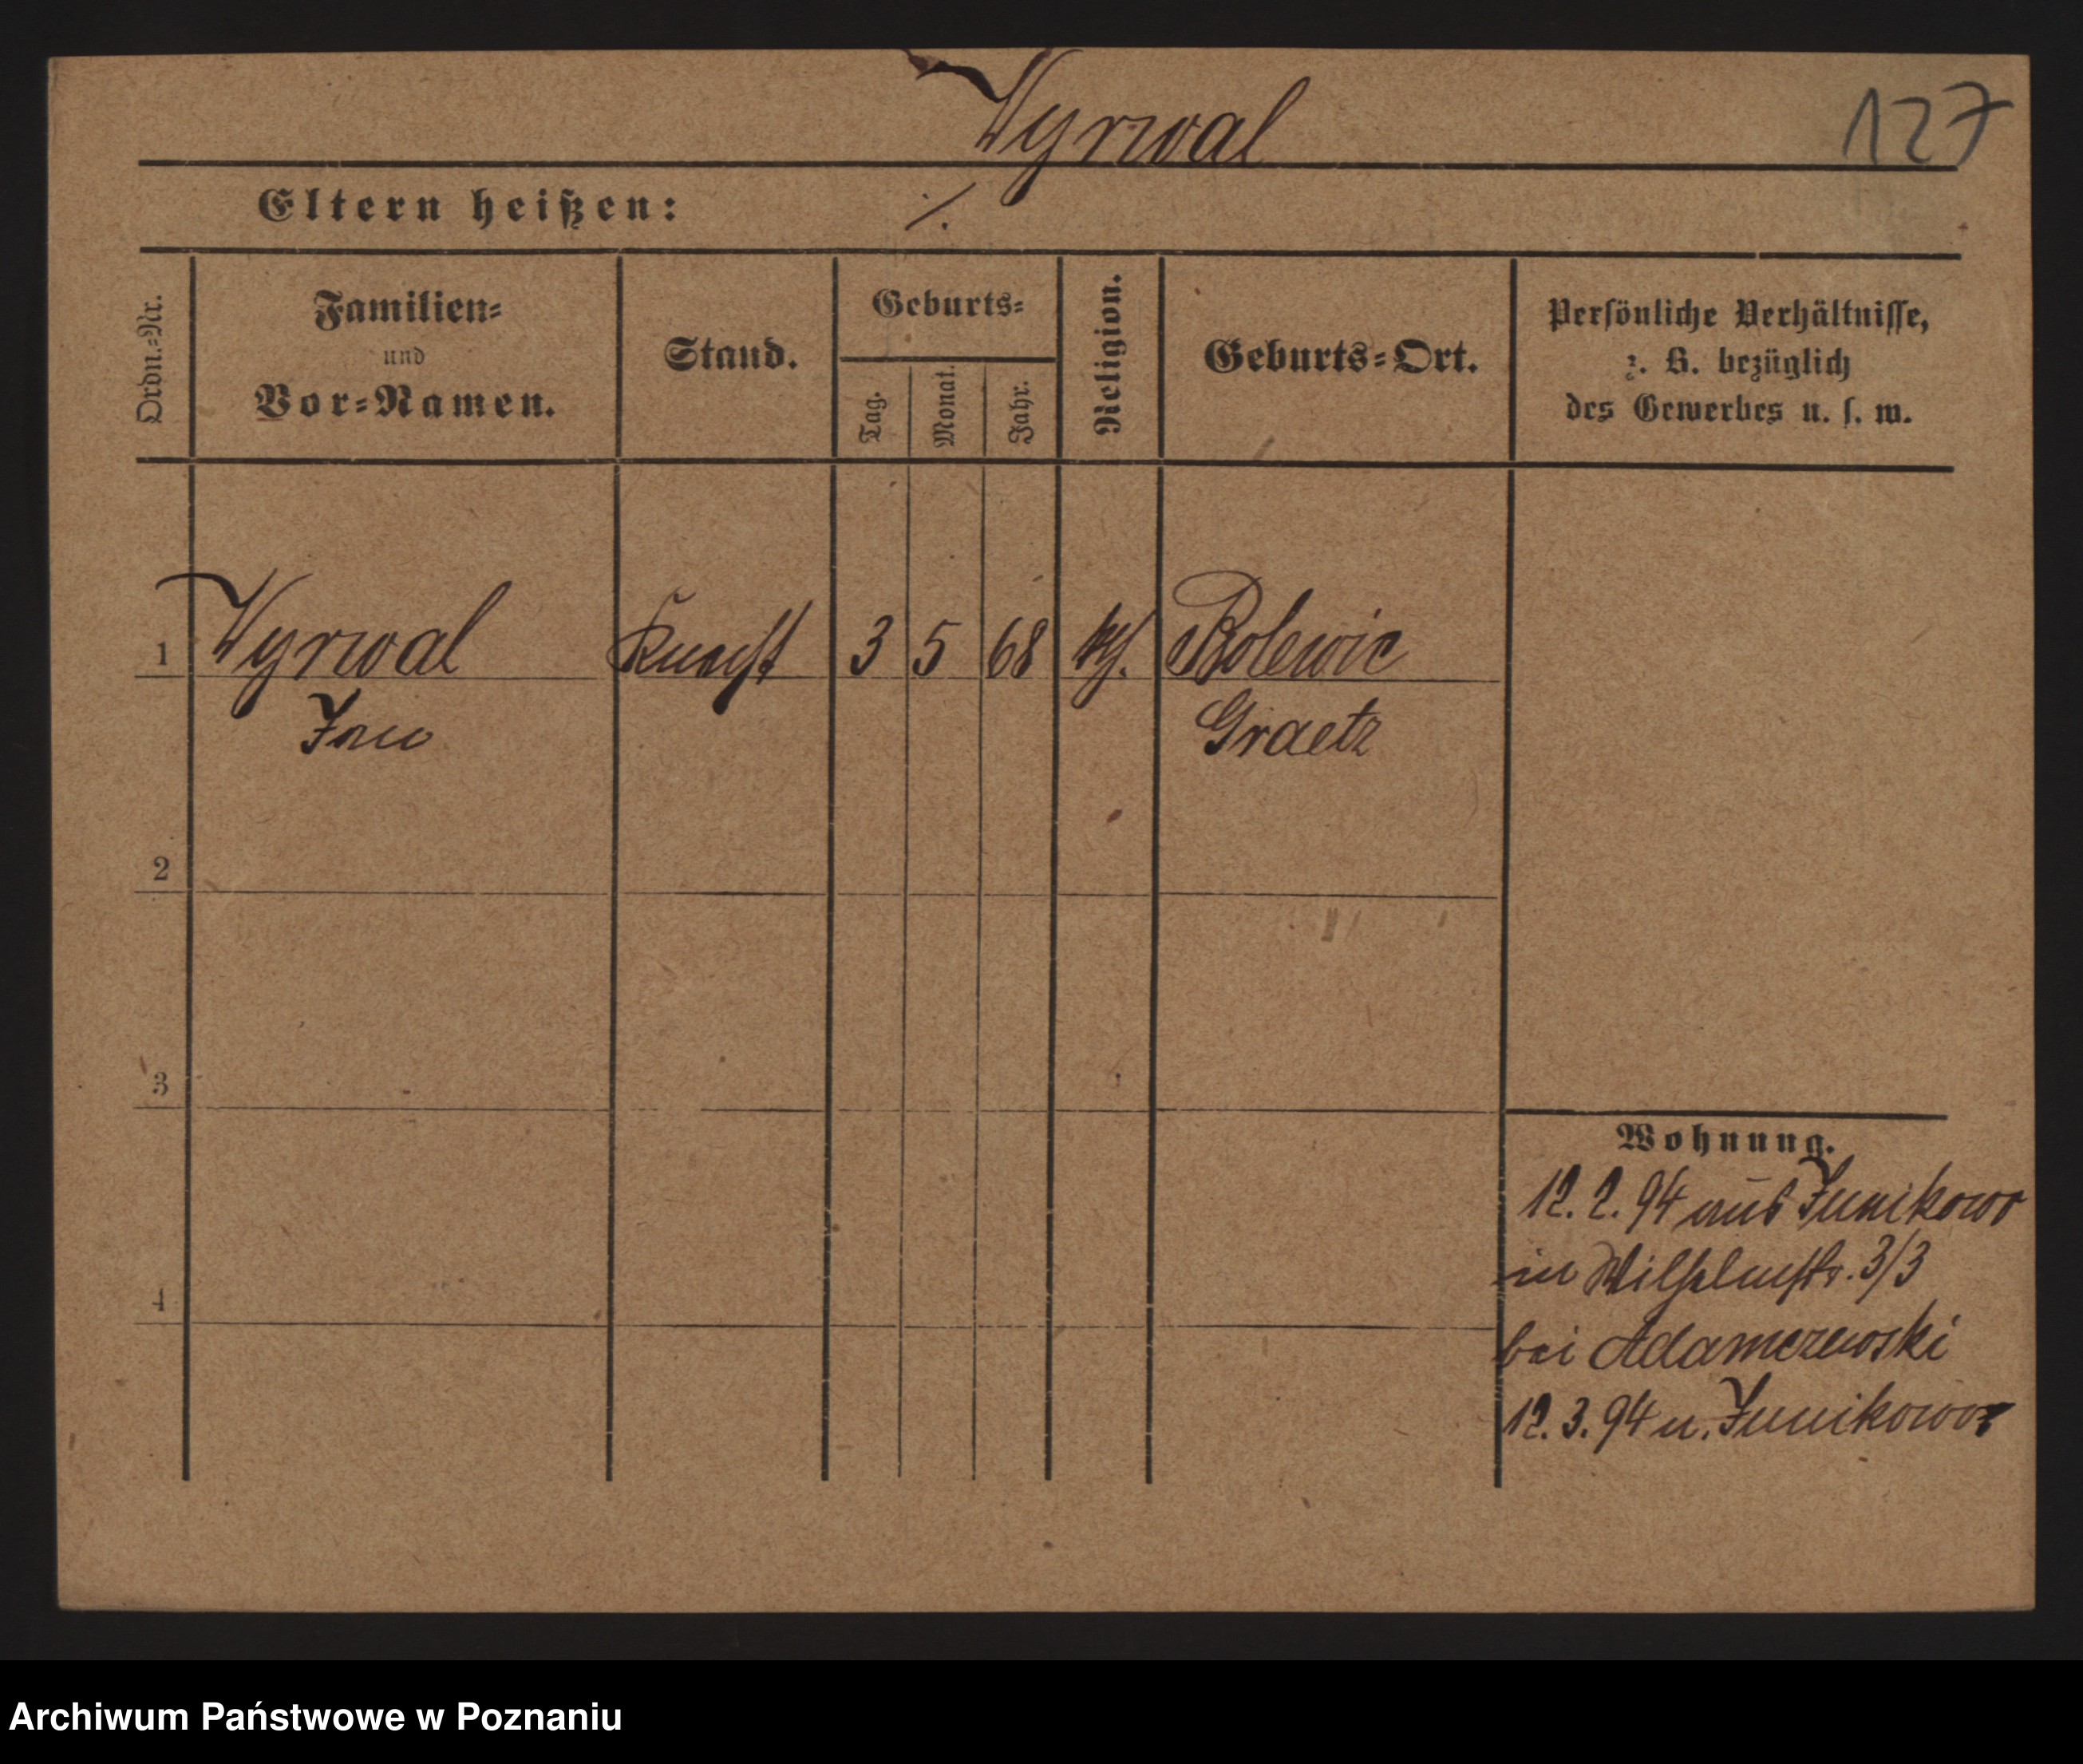 Wyrwal
127
Eltern heißen: ./.
Ordn.-Nr.
Familien-
und
Vor-Namen.
Stand.
Geburts-
Tag.
Monat.
Jahr.
Religion.
Geburts-Ort.
Persönliche Verhältnisse,
z. B. bezüglich
des Gewerbes u. s. w.
1 Wyrwal Knecht 3 5 68 kth. Bolewic
Graetz
2
3
4
Wohnung.
12. 2. 94 aus Junikowo
in Wilhelmstr. 3/3
bei Adamczewski
12. 3. 94 n. Junikowo
Archiwum Państwowe w Poznaniu